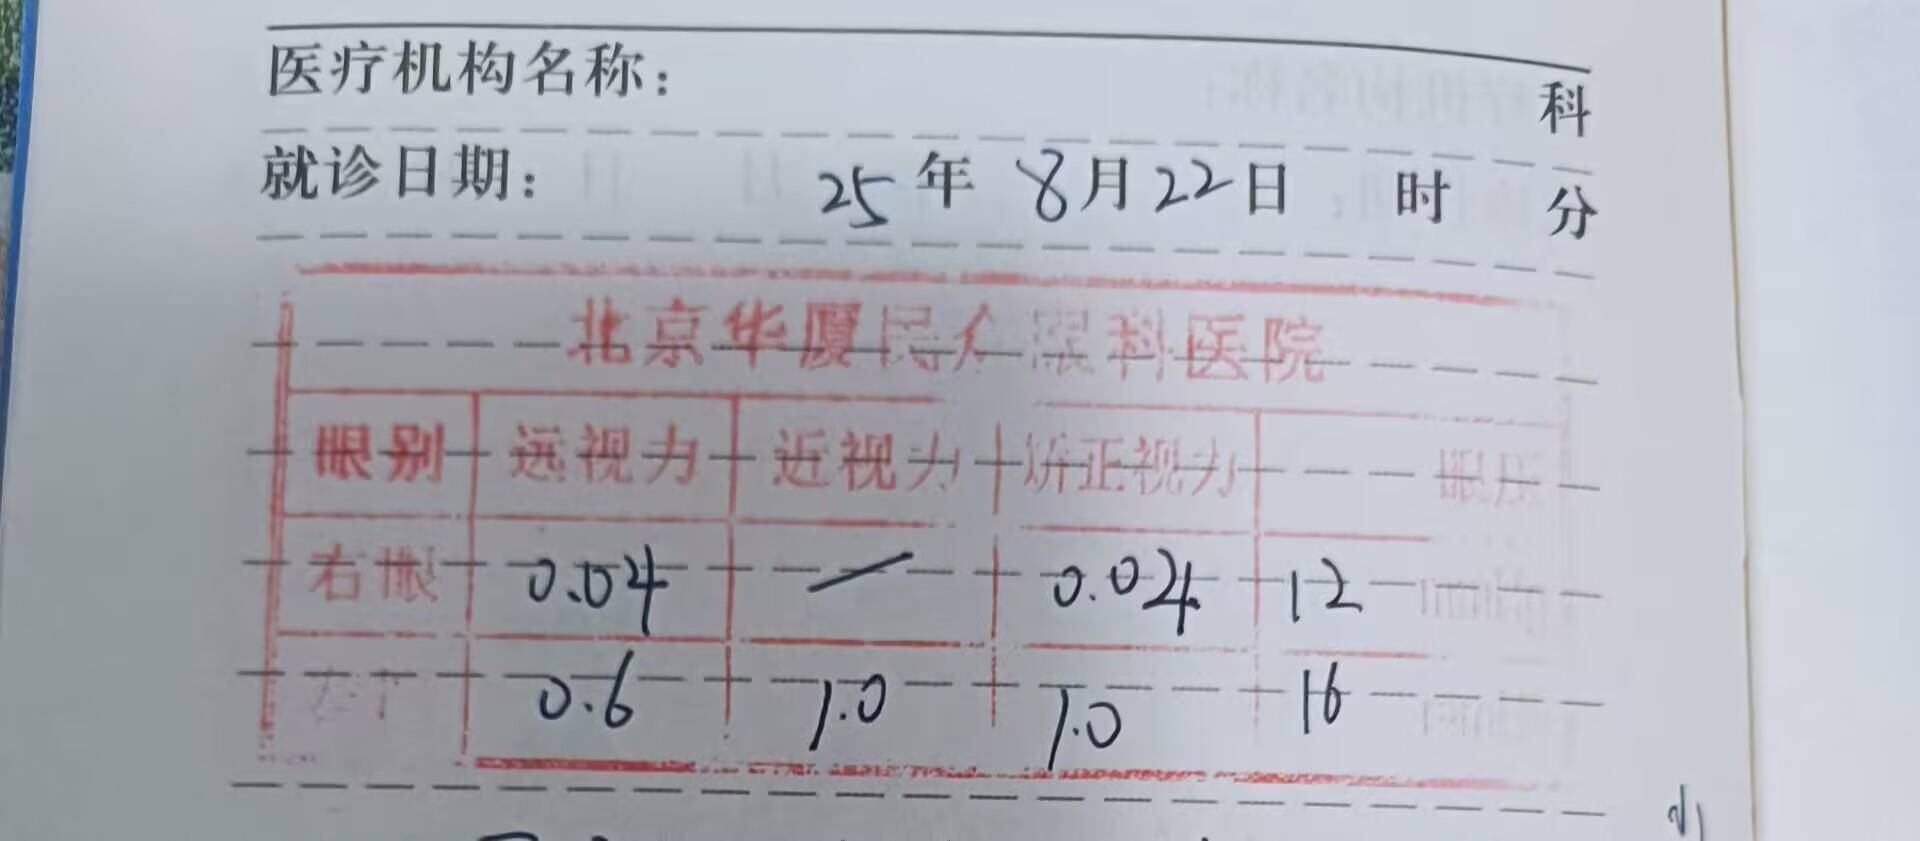 医疗机构名称： 科
就诊日期： 25年 8月22日 时 分
北京华厦民众眼科医院
眼别 远视力 近视力 矫正视力 眼压
右眼 0.04 — 0.04 12
0.6 1.0 1.0 16